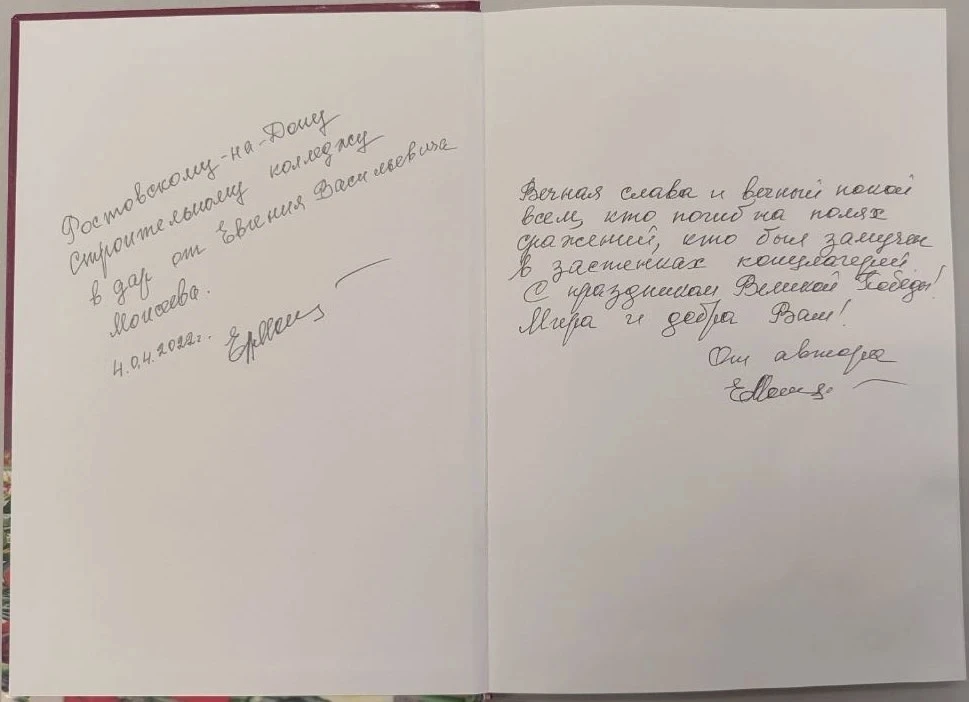 Ростовскому-на-Дону
строительному колледжу
в дар от Евгения Васильевича
Моисеева.
4.04.2022г.
Вечная слава и вечный покой
всем, кто погиб на полях
сражений, кто был замучен
в застенках концлагерей
С праздником Великой Победы!
Мира и добра Вам!
От автора